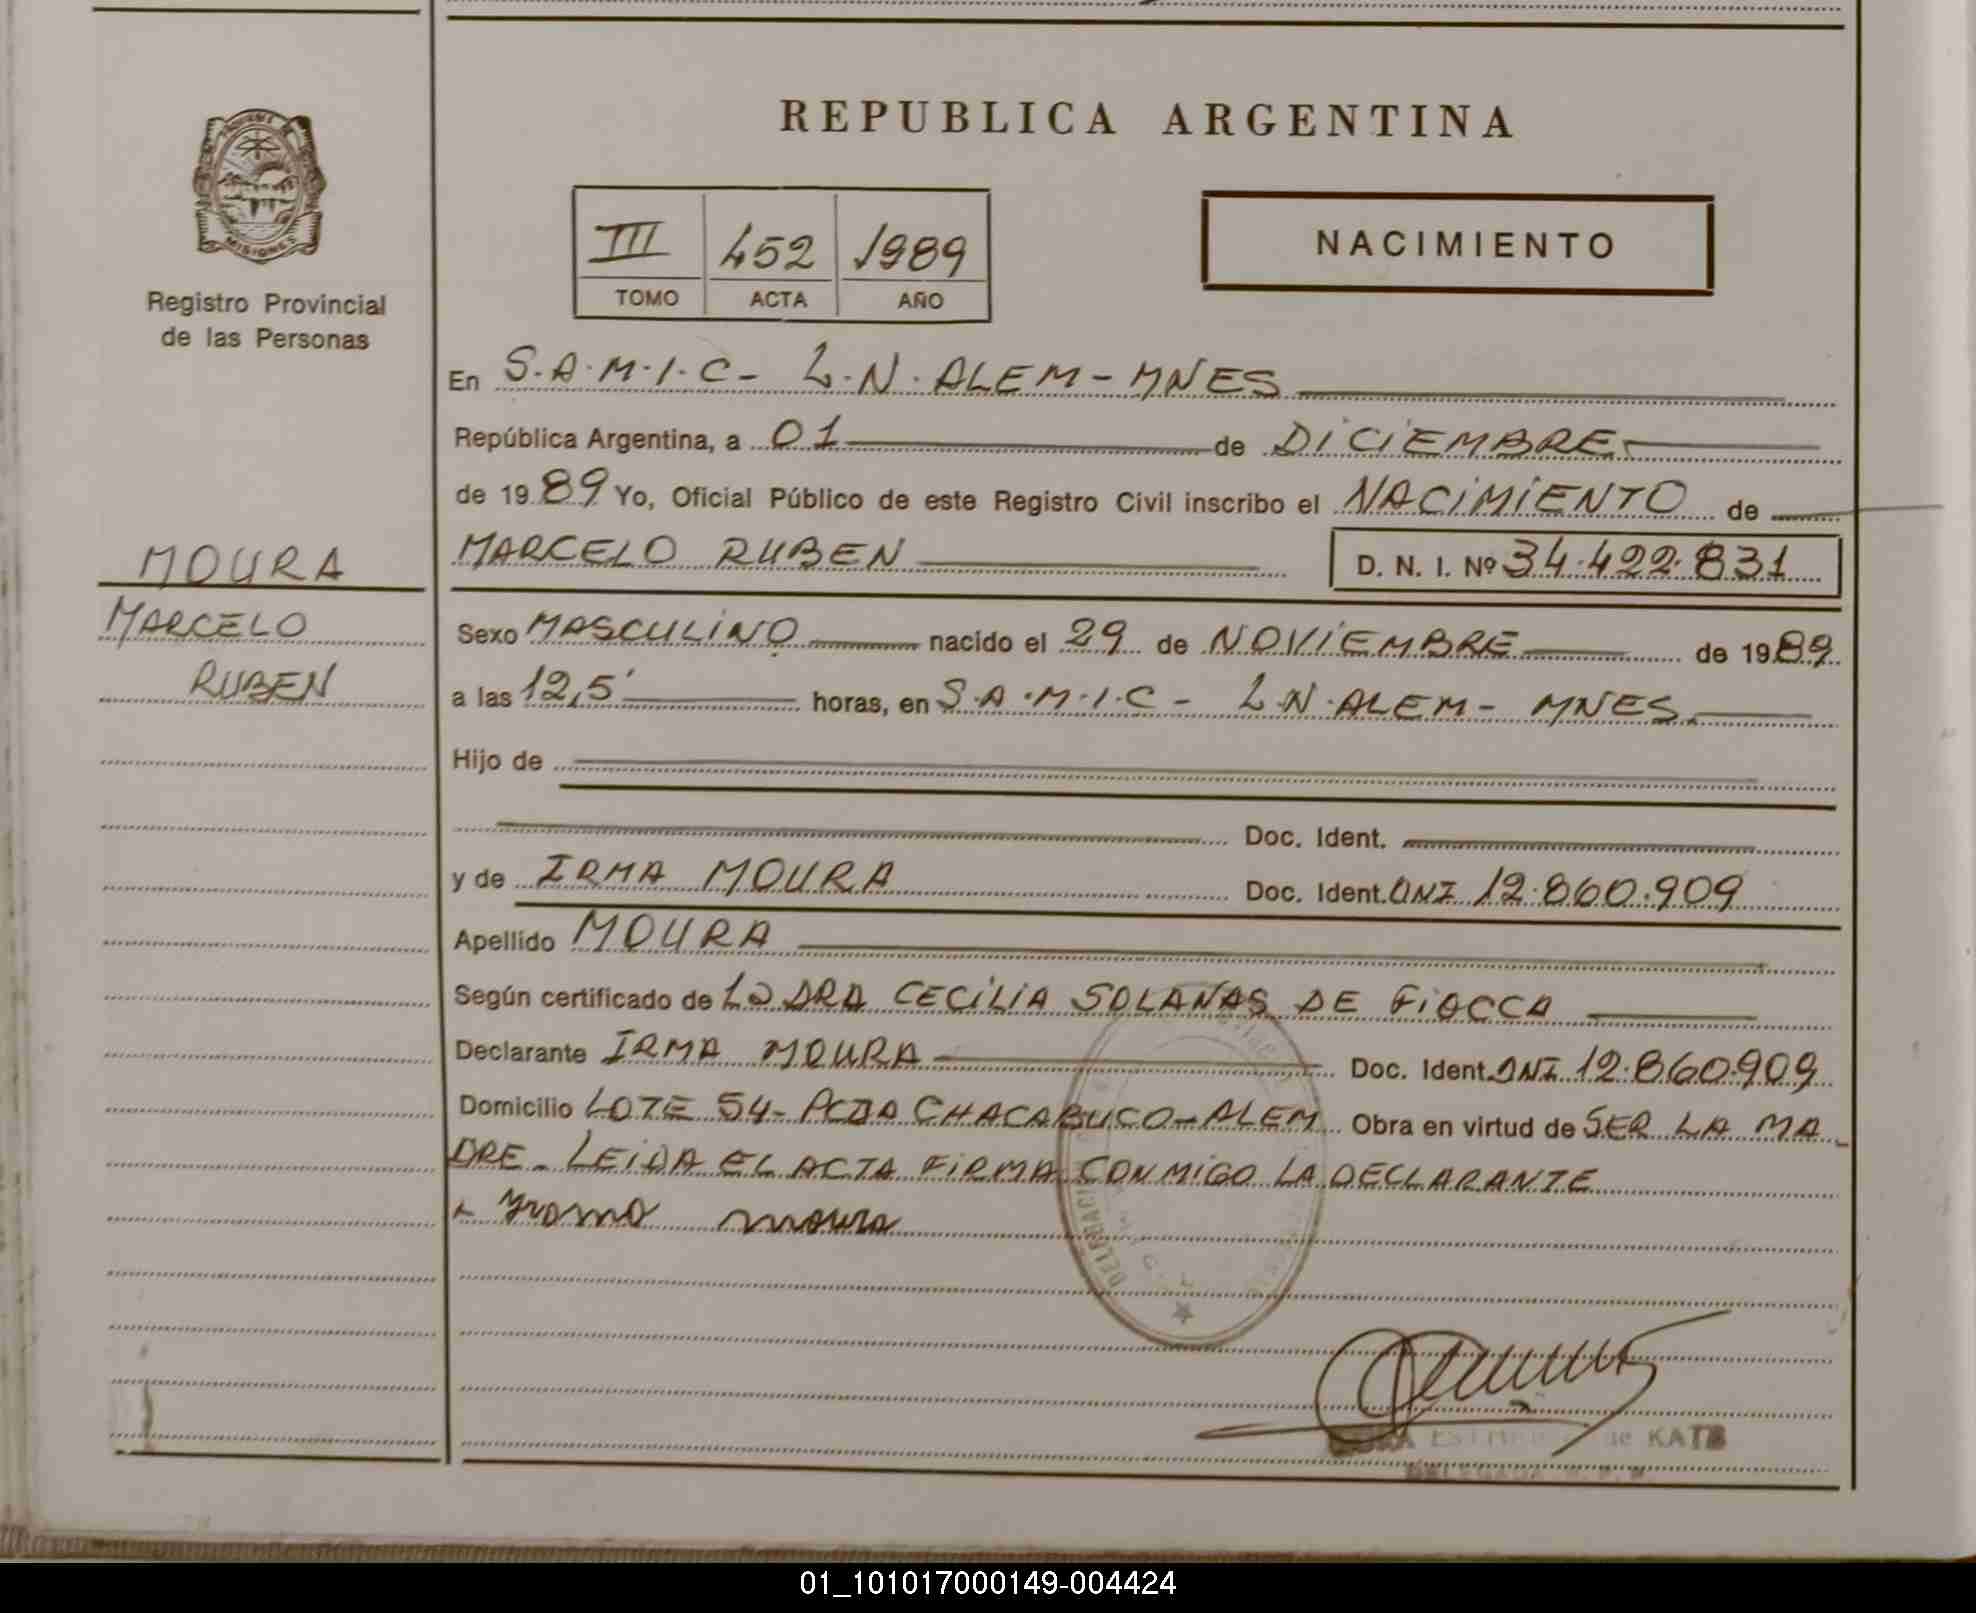 REPUBLICA ARGENTINA
III 452 1989
TOMO ACTA AÑO
NACIMIENTO
Registro Provincial
de las Personas
MISIONES
En S.A.M.I.C- L.N.ALEM-MNES
República Argentina, a 01 de DICIEMBRE
de 1989 Yo, Oficial Público de este Registro Civil inscribo el NACIMIENTO de
MARCELO RUBEN D. N. I. Nº 34.422.831
MOURA
MARCELO
RUBEN
Sexo MASCULINO nacido el 29 de NOVIEMBRE de 1989
a las 12,5' horas, en S.A.M.I.C- L.N.ALEM- MNES.
Hijo de
Doc. Ident.
y de IRMA MOURA Doc. Ident. DNI 12.860.909
Apellido MOURA
Según certificado de La DRA CECILIA SOLANAS DE FIOCCA
Declarante IRMA MOURA Doc. Ident. DNI 12.860.909
Domicilio LOTE 54- PCDA CHACABUCO-ALEM Obra en virtud de SER LA MA-
DRE- LEIDA EL ACTA FIRMA CONMIGO LA DECLARANTE
moura
de KATZ
DELEGADA
01_101017000149-004424